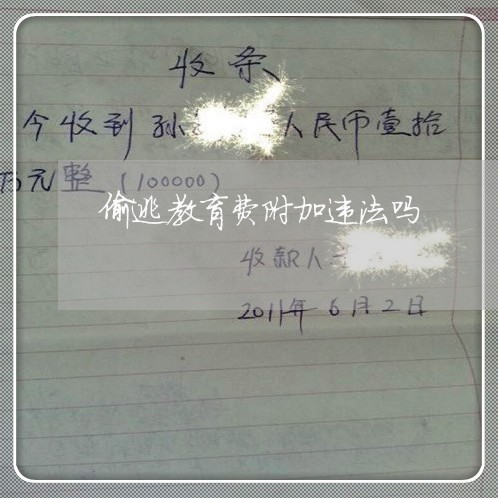 收条
今收到孙 人民币壹拾
万元整（100000）
偷逃教育费附加违法吗
收款人
2011年6月2日